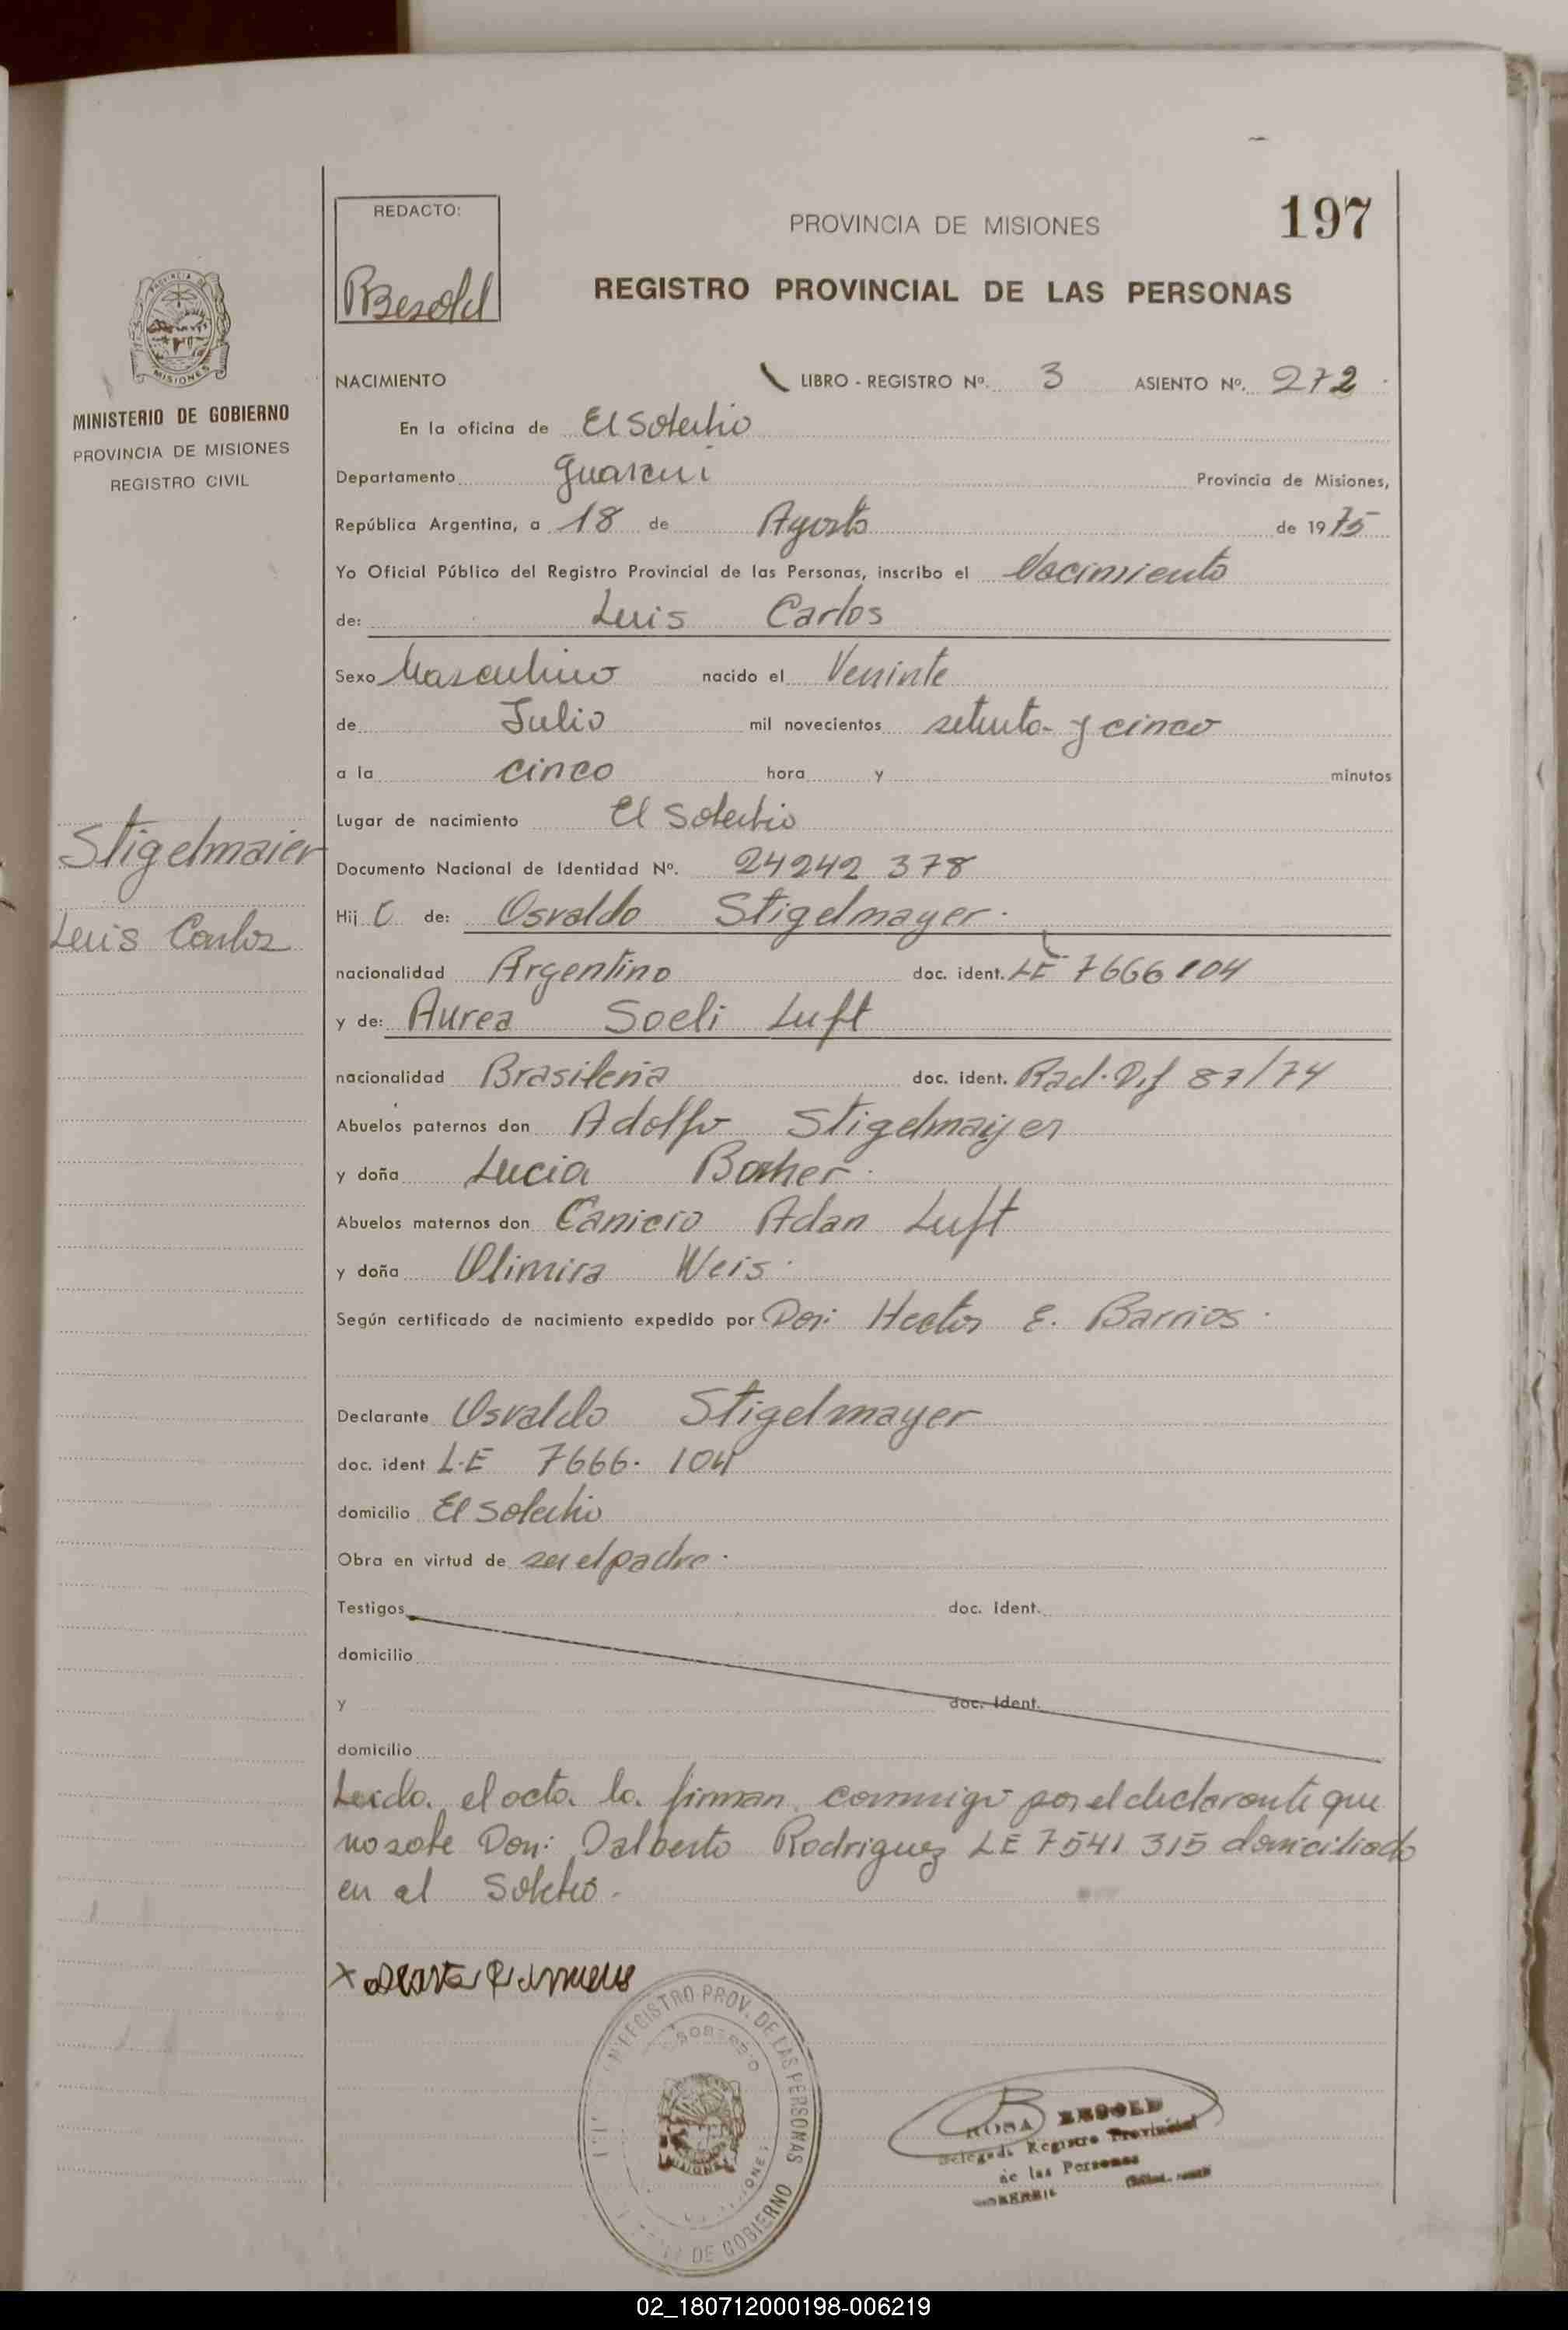 197
REDACTO:
RBesold
PROVINCIA DE MISIONES
REGISTRO PROVINCIAL DE LAS PERSONAS
MISIONES
MINISTERIO DE GOBIERNO
PROVINCIA DE MISIONES
REGISTRO CIVIL
NACIMIENTO LIBRO - REGISTRO Nº. 3 ASIENTO Nº. 272
En la oficina de El Soberbio
Departamento Guarani Provincia de Misiones,
República Argentina, a 18 de Agosto de 1975
Yo Oficial Público del Registro Provincial de las Personas, inscribo el Nacimiento
de: Luis Carlos
Sexo Masculino nacido el Veninte
de Julio mil novecientos setenta y cinco
a la cinco hora y minutos
Lugar de nacimiento El Soberbio
Stigelmaier
Luis Carlos
Documento Nacional de Identidad Nº. 24242 378
Hij o de: Osvaldo Stigelmayer.
nacionalidad Argentino doc. ident. LE 7666104
y de: Aurea Soeli Luft
nacionalidad Brasileña doc. ident. Rad. Def 87/74
Abuelos paternos don Adolfo Stigelmayer
y doña Lucia
Abuelos maternos don Canicio Adan Luft
y doña Olimira Weis.
Según certificado de nacimiento expedido por Don: Hector E. Barrios.
Declarante Osvaldo Stigelmayer
doc. ident L.E 7666. 104
domicilio El Soberbio
Obra en virtud de ser el padre.
Testigos doc. ident.
domicilio
y doc. ident.
domicilio
Leida el acta la firman conmigo por el declarante que
no sabe Don: Dalberto Rodriguez LE 7541 315 domiciliado
en el Soberbio.
REGISTRO PROV. DE LAS PERSONAS
DE GOBIERNO
ROSA BESOLD
Delegada Registro Provincial
de las Personas
02_180712000198-006219